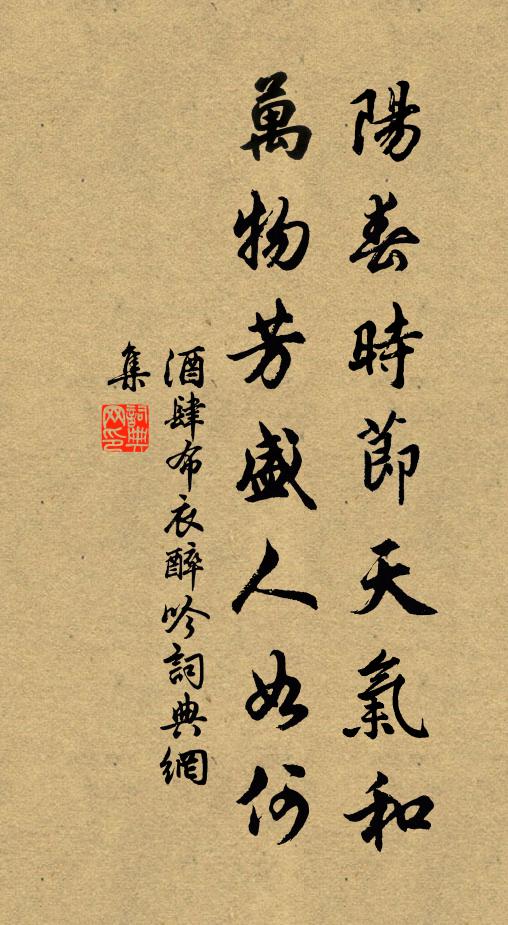 陽春時節天氣和
萬物芳盛人如何
酒肆布衣醉吟詞典網
集
詞典
网印